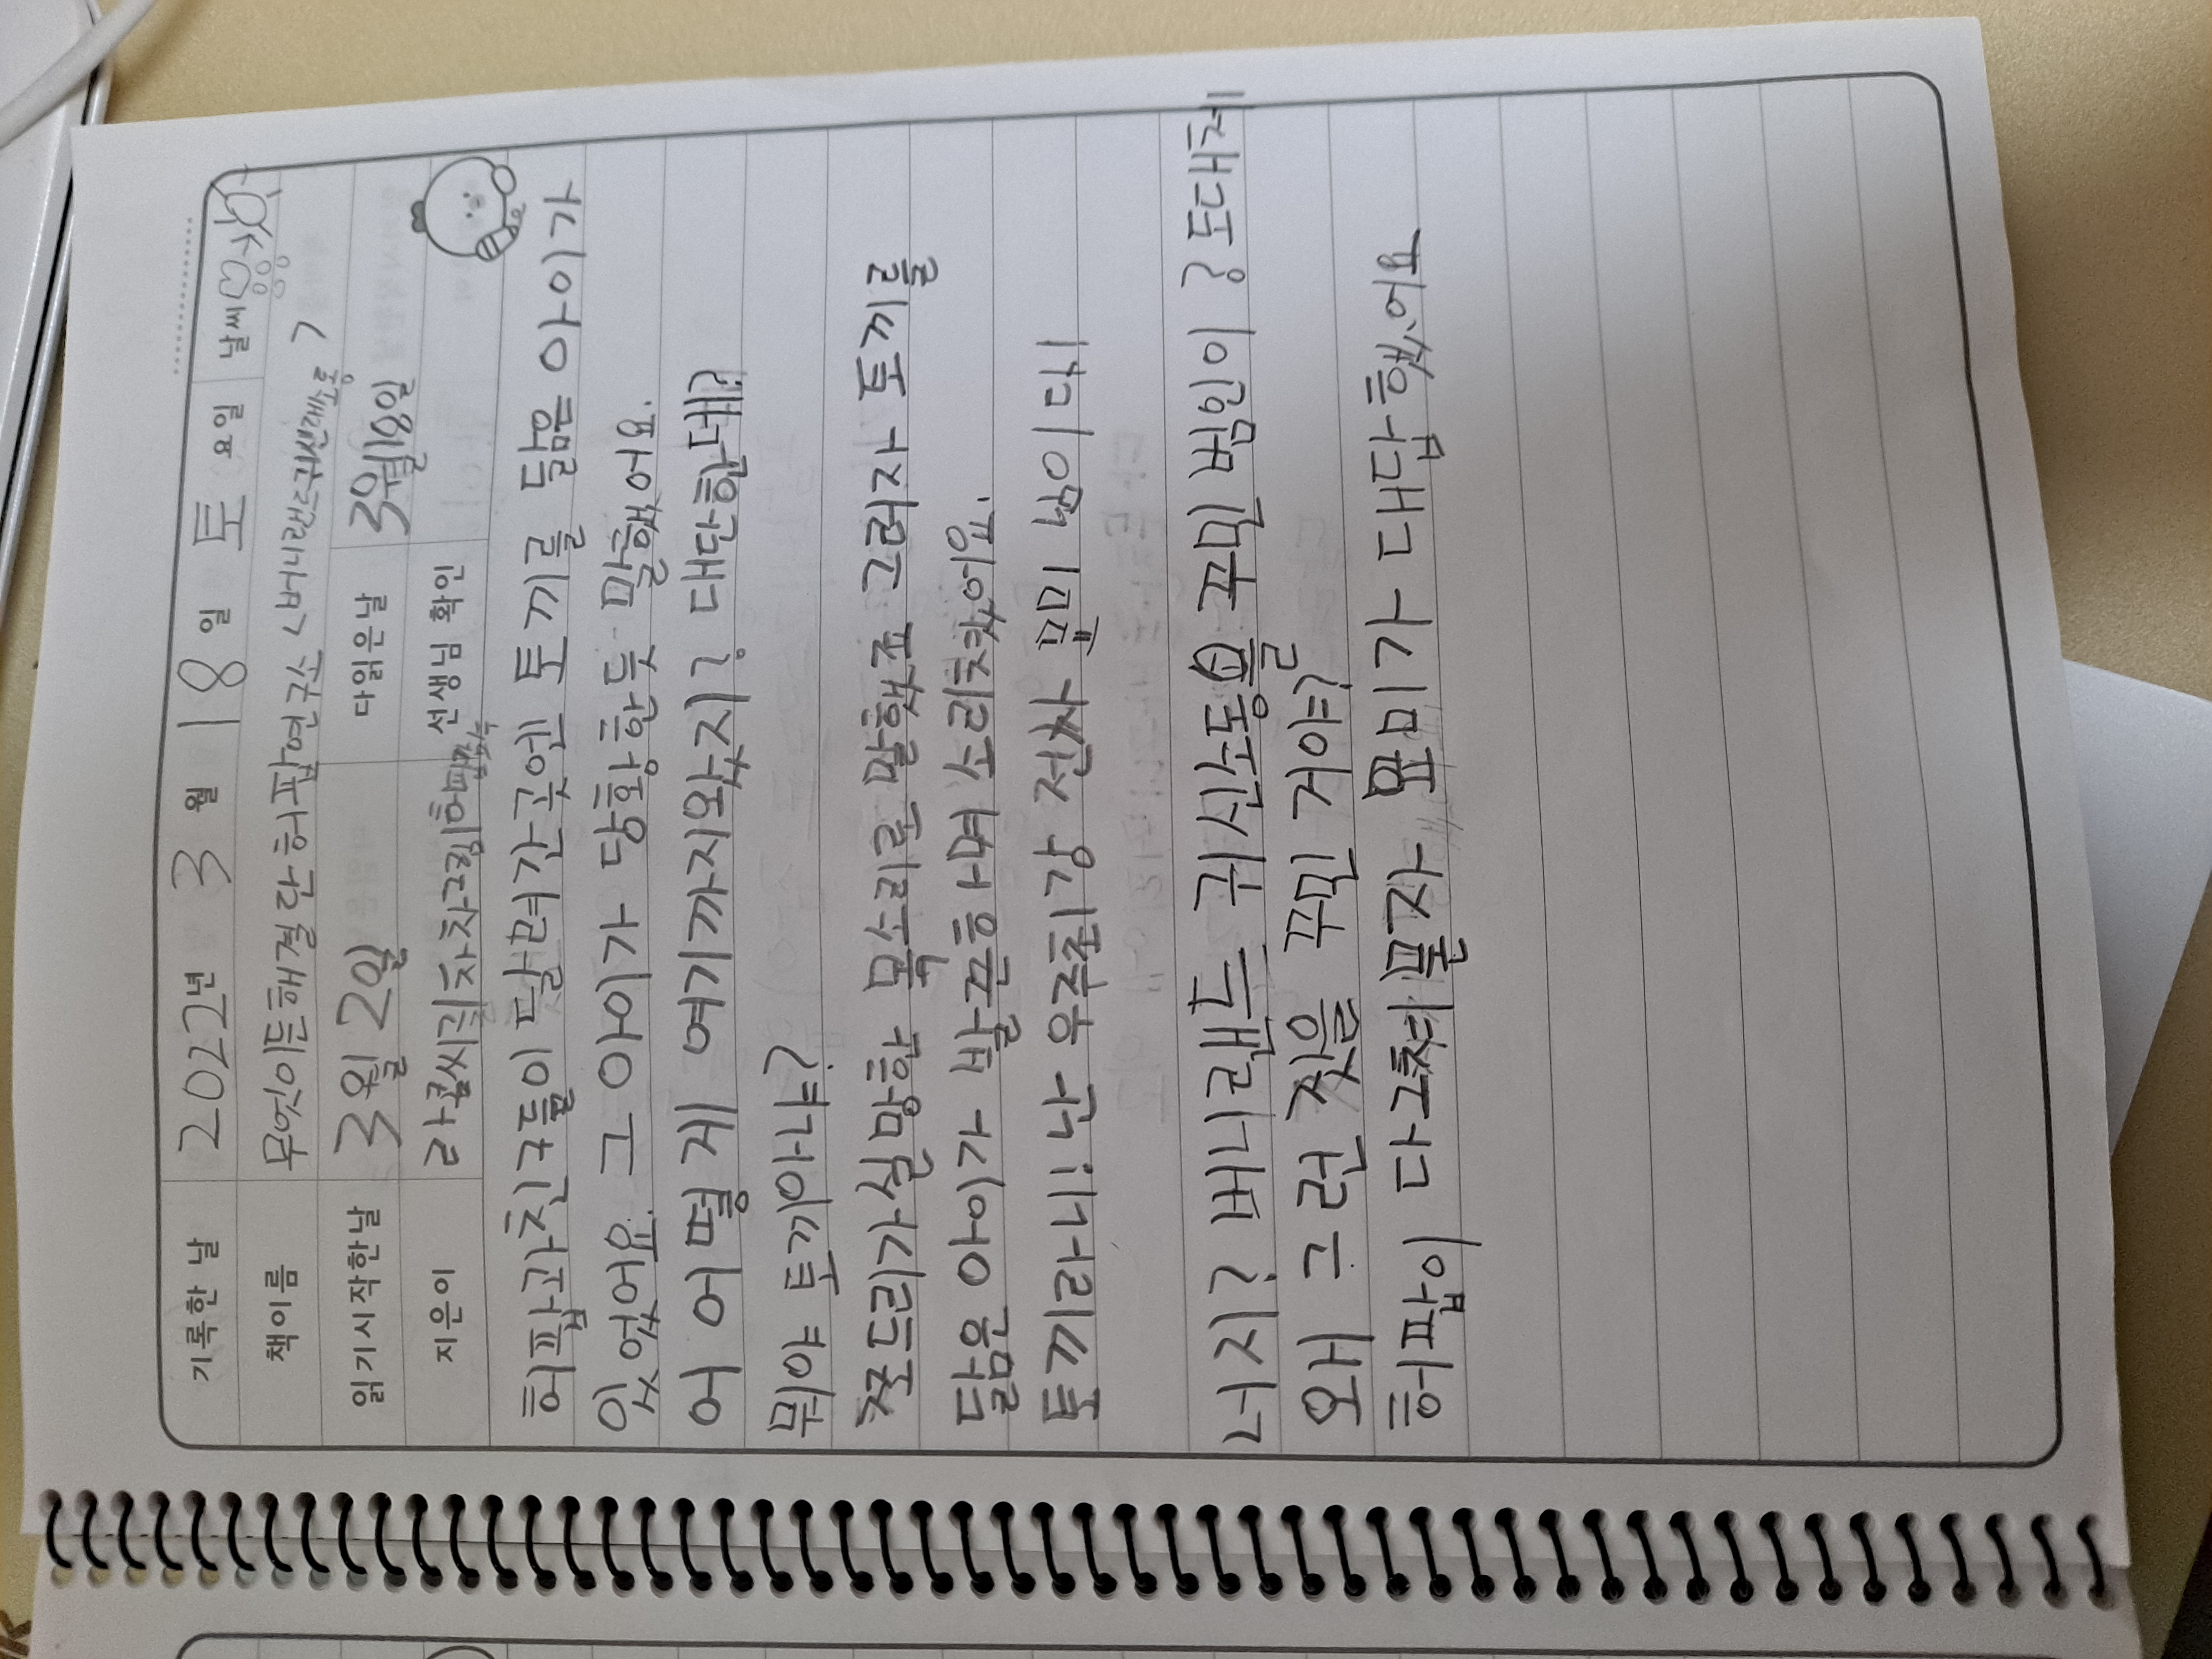 기록한 날 2022년 3 월 18 일 토 요일 날씨
책이름 무엇이든해결단허팝연구소 <버니랜드귀신대소동>
읽기시작한날 3월 2일 다읽은날 3월18일
지은이 라곰씨글 차차그림 허팝감수 선생님 확인
허팝과친구들이 달려간곳엔 토끼를 닮은 아이가
있었어요. 그 아이가 당황한듯 말했어요.
어 어떻게 여기까지왔지? 대단한데?
뭐야 토끼아냐?
쪼드리가실망한 목소리로 말했죠 그러자 토끼를
닮은 아이가 발끈하며 소리쳤어요.
토끼라니! 난 우주최강 전사 묘미 님이다!
너지? 버니랜드 귀신소동을 꾸민 범인이 ? 도대체
왜 그런 짓을 꾸민 거야?
허팝이 다그쳐묻자 묘미가 대답했어요